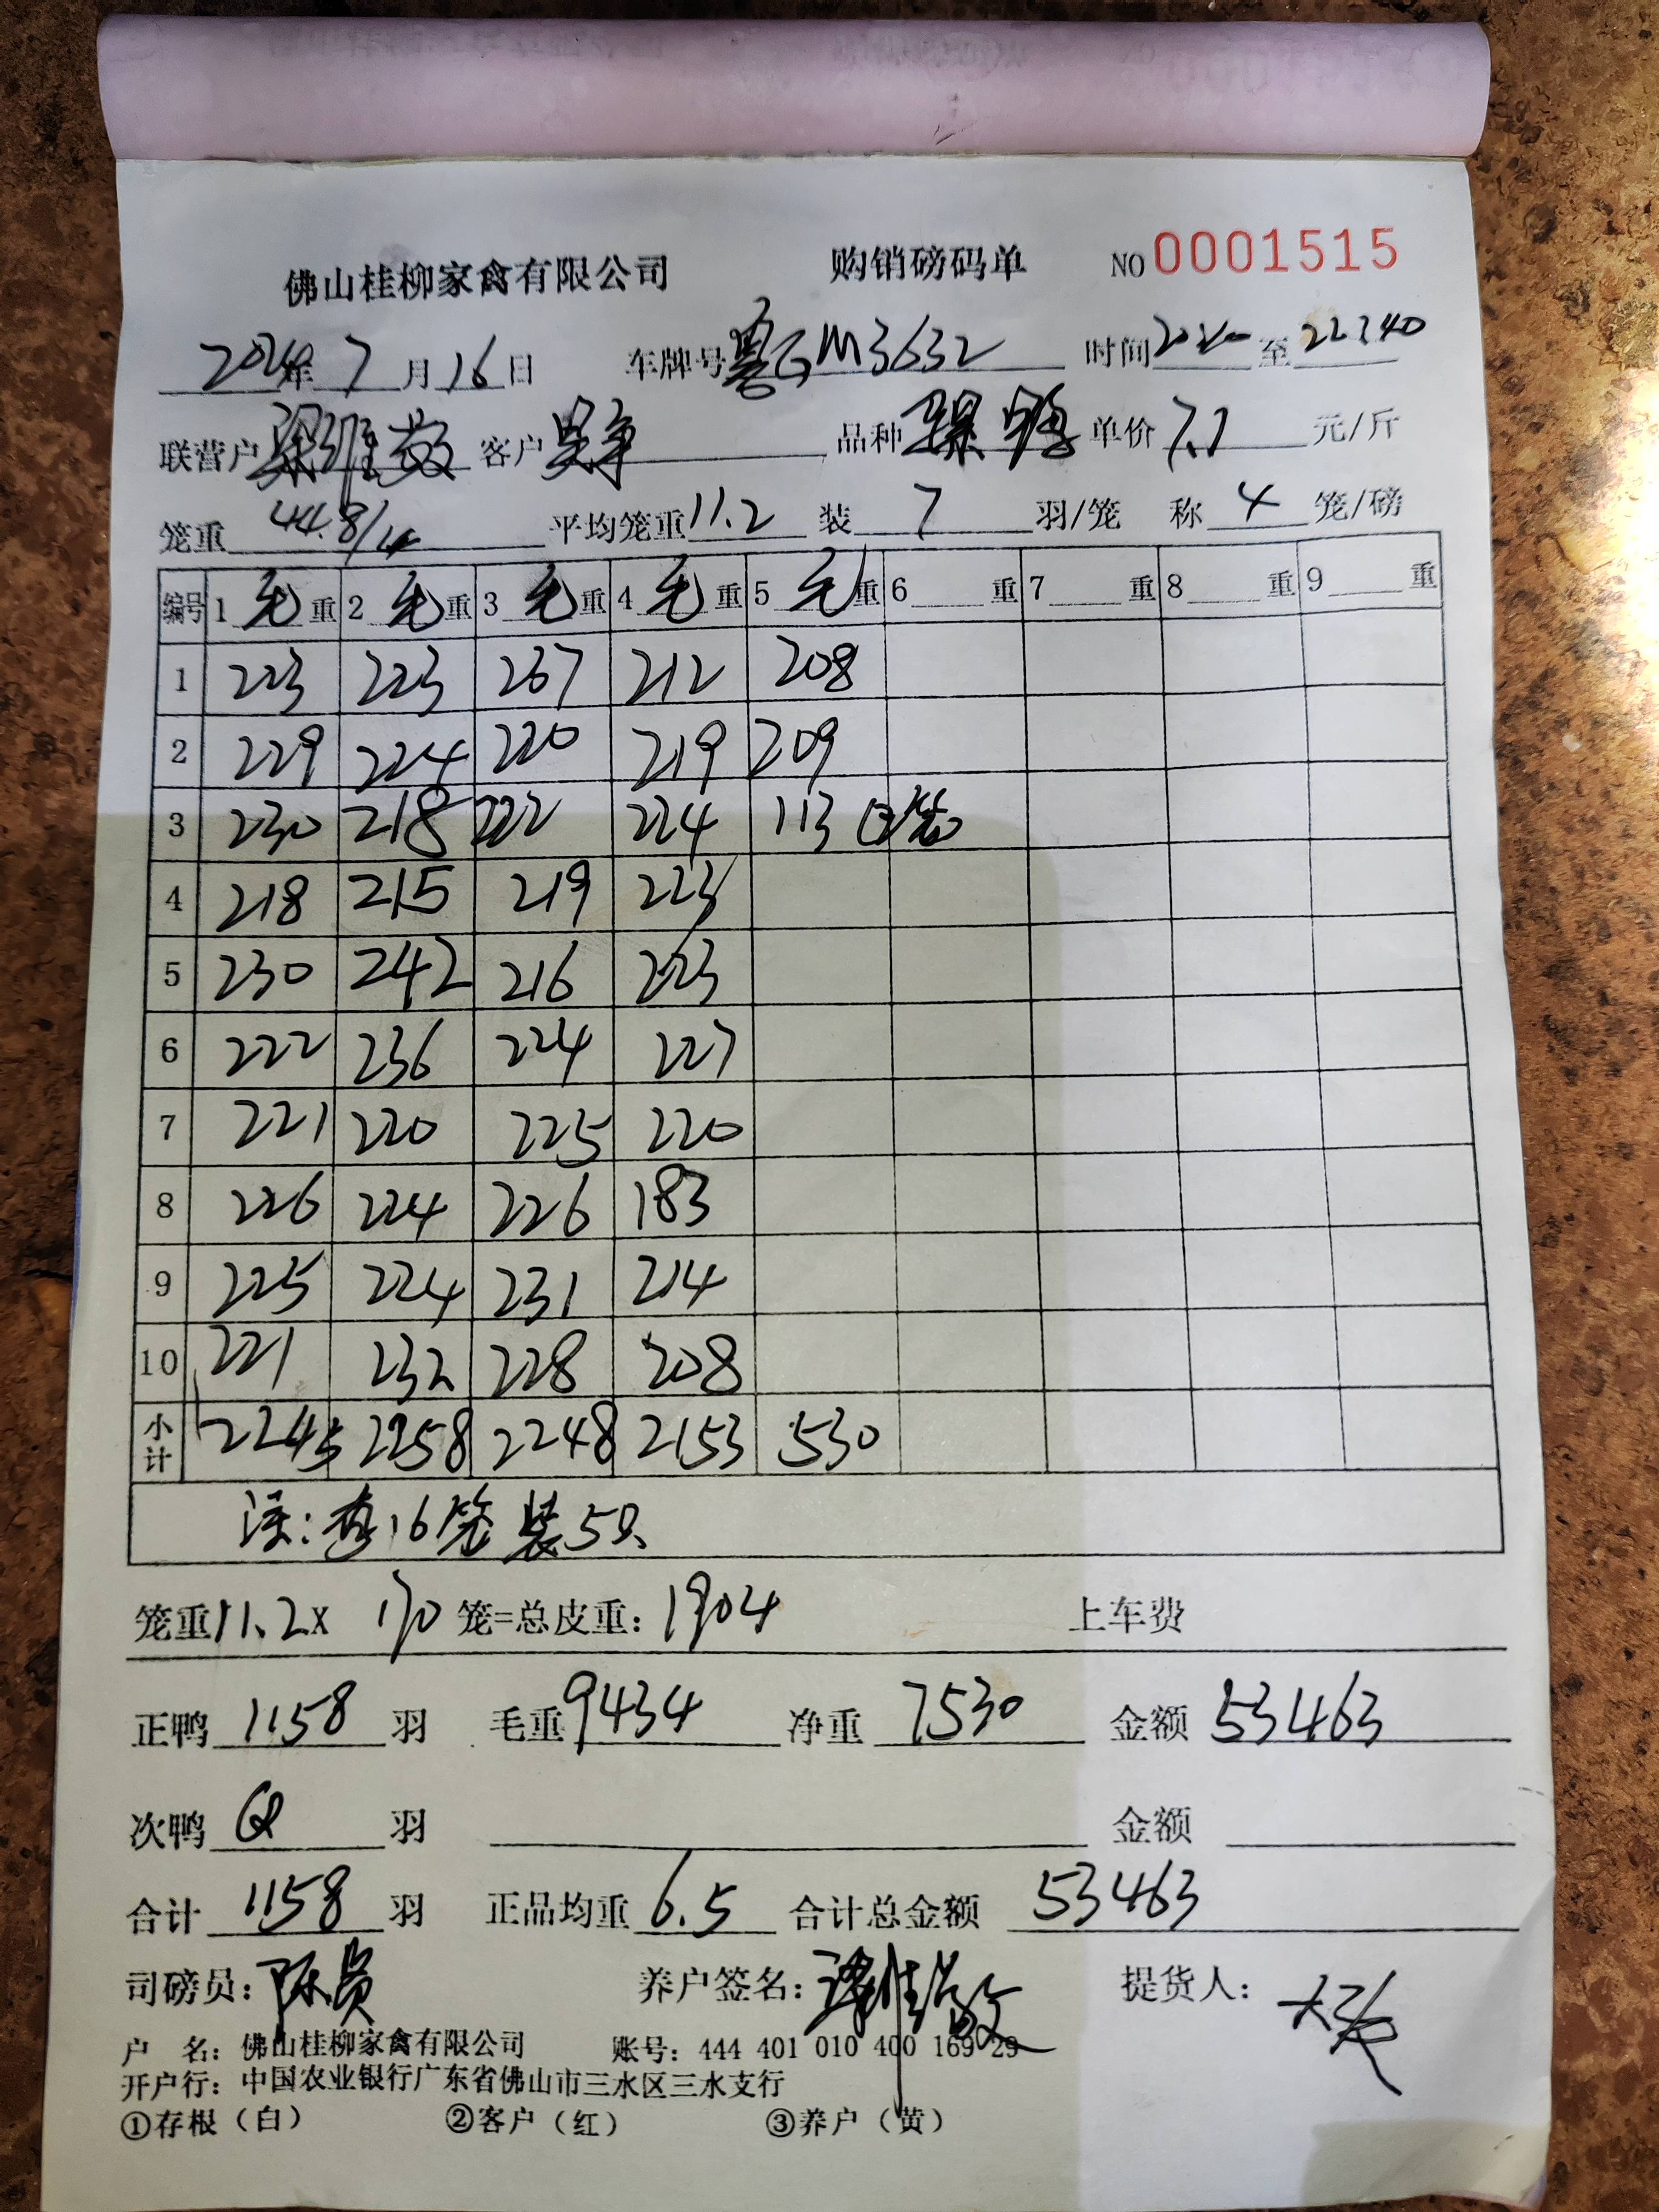 佛山桂柳家禽有限公司 购销磅码单 NO 0001515
2024年 7 月 16 日 车牌号 粤GM3632 时间 至 22:40
联营户 客户 吴争 品种 单价 7.1 元/斤
笼重 44.8/4 平均笼重 11.2 装 7 羽/笼 称 4 笼/磅
编号 1 毛 重 2 毛 重 3 毛 重 4 毛 重 5 毛 重 6 重 7 重 8 重 9 重
1 223 223 237 212 208
2 229 224 220 219 209
3 230 218 222 224 113
4 218 215 219 223
5 230 242 216 223
6 222 236 224 227
7 221 220 225 220
8 226 224 226 183
9 225 224 231 214
10 221 232 228 208
小计 2245 2258 2248 2153 530
注: 16笼装5只
笼重 11.2 x 170 笼=总皮重: 1904 上车费
正鸭 1158 羽 毛重 9434 净重 7530 金额 53463
次鸭 羽 金额
合计 1158 羽 正品均重 6.5 合计总金额 53463
司磅员: 养户签名: 提货人:
户 名: 佛山桂柳家禽有限公司 账号: 444 401 010 400 169 29
开户行: 中国农业银行广东省佛山市三水区三水支行
①存根（白） ②客户（红） ③养户（黄）